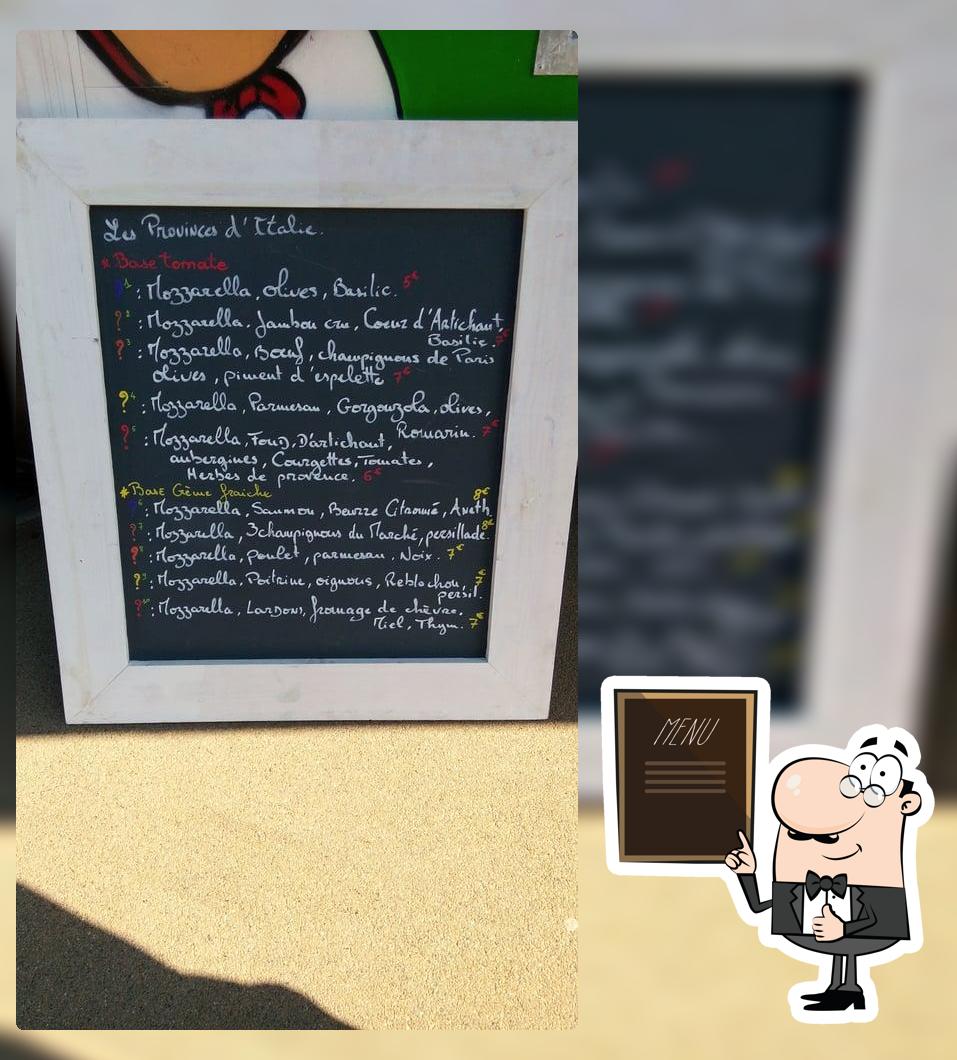 Les Provinces d'Italie.
* Base tomate
?1 : Mozzarella, olives, Basilic. 5€
?2 : Mozzarella, Jambon cru, Coeur d'Artichaut,
Basilic. 7€
?3 : Mozzarella, Bœuf, champignons de Paris
olives, piment d'espelette 7€
?4 : Mozzarella, Parmesan, Gorgonzola, olives,
Romarin. 7€
?5 : Mozzarella, Fond D'artichaut,
aubergines, Courgettes, Tomates,
Herbes de provence. 6€
* Base Crème fraiche
?6 : Mozzarella, Saumon, Beurre Citronné, Aneth. 8€
?7 : Mozzarella, 3champignons du Marché, persillade. 8€
?8 : Mozzarella, Poulet, parmesan, Noix. 7€
?9 : Mozzarella, Poitrine, oignons, Reblochon, 7€
persil.
?10 : Mozzarella, LarDons, fromage de chèvre,
Miel, Thym. 7€
MENU